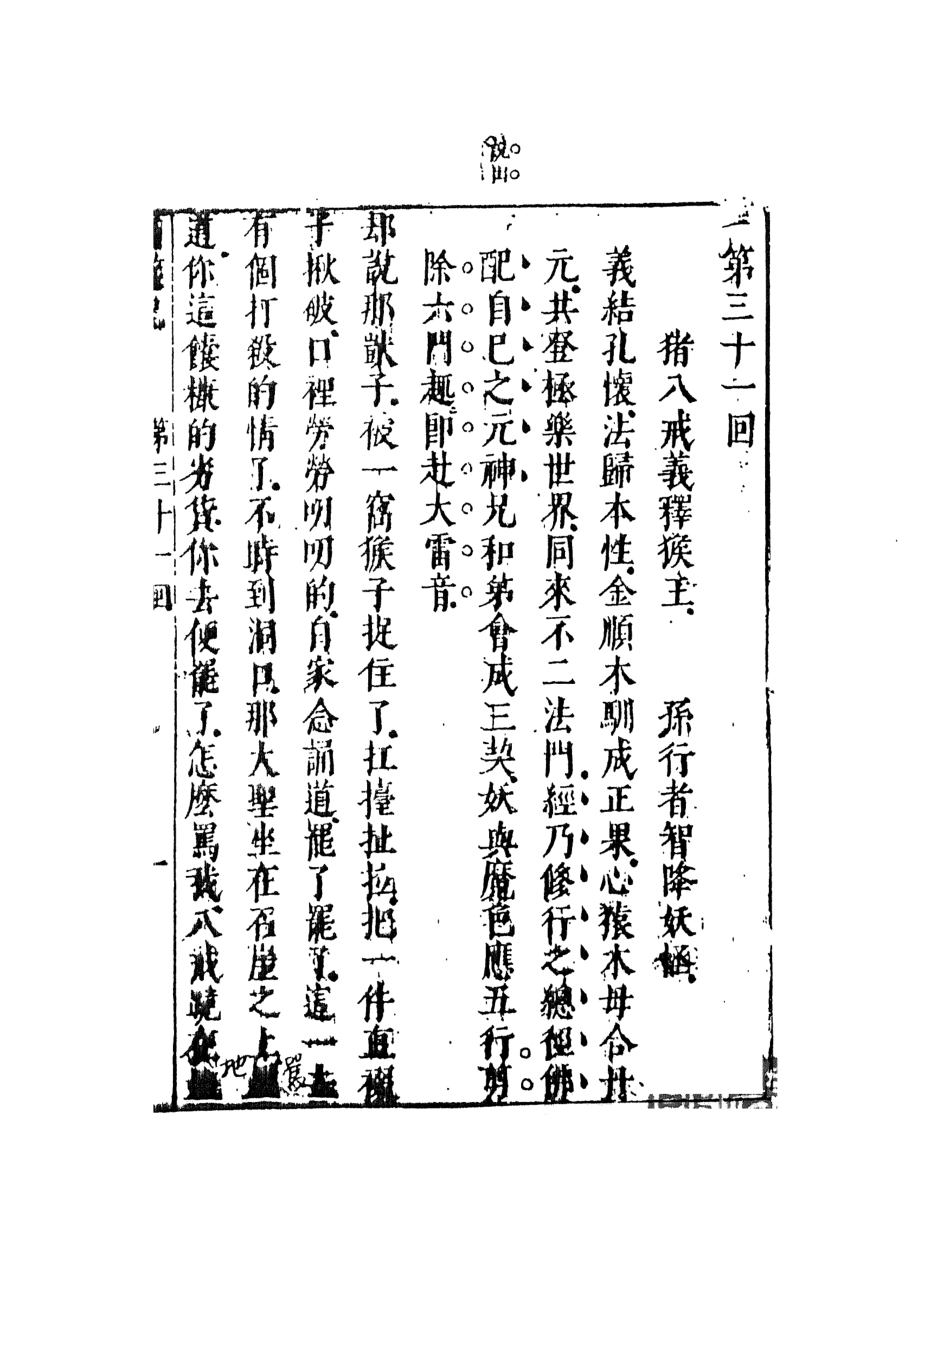 說出
第三十一回
猪八戒義釋猴王　孫行者智降妖怪
義結孔懷法歸本性金順木馴成正果心猿木母合丹
元共登極樂世界同來不二法門經乃修行之總徑佛
配自己之元神兄和弟會成三契妖與魔色應五行剪
除六門趣即赴大雷音
却說那獃子被一窩猴子捉住了扛擡扯拉把一件直裰
子揪破口裡勞勞叨叨的自家念誦道罷了罷了這一去
有個打殺的情了不時到洞口那大聖坐在石崖之上罵
道你這饢糠的劣貨你去便罷了怎麼罵我八戒跪在地
第三十一回
一